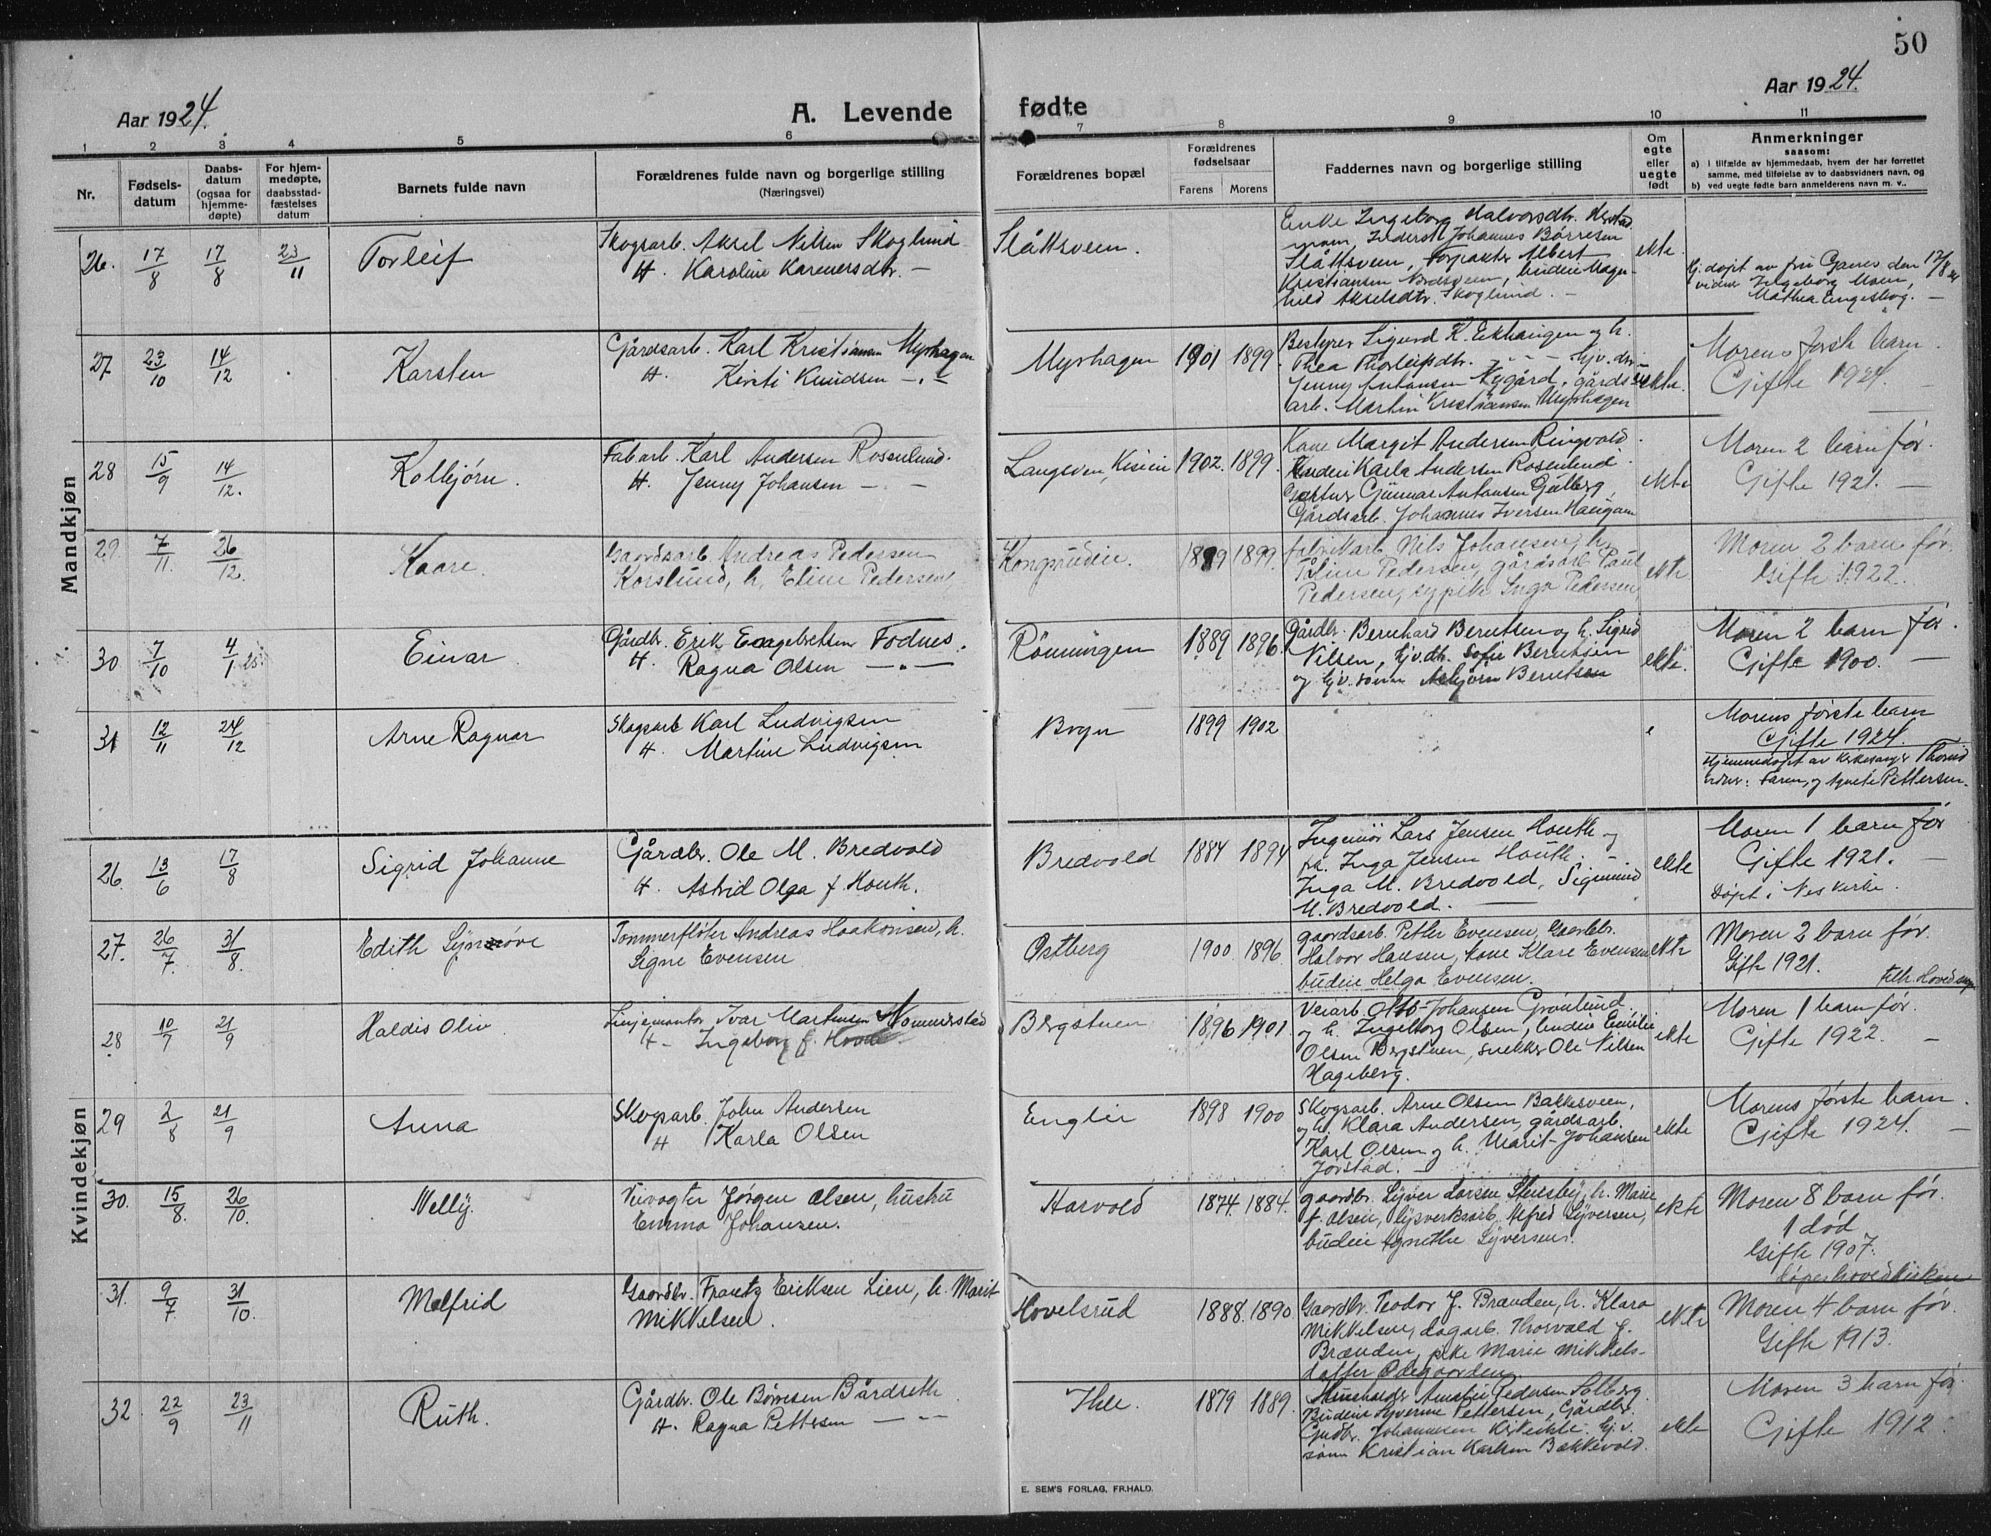 50
Aar 1924.
A. Levende fødte
Aar 1924.
1 2 3 4 5 6 7 8 9 10 11
Nr.
Fødsels-
datum
Daabs-
datum
(ogsaa for
hjemme-
døpte)
For hjem-
medøpte,
daabsstad-
fæstelses
datum
Barnets fulde navn
Forældrenes fulde navn og borgerlige stilling
(Næringsvei)
Forældrenes bopæl
Forældrenes
fødselsaar
Farens Morens
Faddernes navn og borgerlige stilling
Om
egte
eller
uegte
født
Anmerkninger
saasom:
a) i tilfælde av hjemmedaab, hvem der har forrettet
samme, med tilføielse av to daabsvidners navn, og
b) ved uegte fødte barn anmelderens navn m. v..
Mandkjøn
26. 17/8 17/8 23/11 Torleif
Skogsarb. Aksel Nilsen Skoglund
H. Karoline Karenersdtr. —
Slåttsveen.
Enke Ingeborg Halvorsdtr.
Johannes Børresen
Slåttsveen, Albert
Kristiansen Nordsveen, budeie Magn-
hild Akselsdtr. Skoglund. —
ekte.
Hj. døpt av fru Garus den 17/8 24
vidner Ingeborg Moen,
Mathea Engeskog. —
27 23/10 14/12 Karsten
Gårdsarb. Karl Kristiansen Myrhagen
H. Kirsti Knudsen —
Myrhagen 1901 1899
Bestyrer Sigurd K. Ekhaugen og h.
Thea Thorleifdtr. — hjv. dtr.
Jenny Antonsen Nygård, gårds-
arb. Martin Kristiansen Myrhagen
ekte.
Morens første barn.
Gifte 1924. —
28 15/9 14/12. Kolbjørn.
Fabarb. Karl Andersen Rosenlund.
H. Jenny Johansen — —
Langsveen, 1902. 1899.
Kone Margit Andersen Ringvold.
Budeie Karla Andersen Rosenlund.
Gartner Gunnar Antonsen Gulberg,
Gårdsarb. Johannes Iversen Haugom
ekte
Moren 2 barn før.
Gifte 1921. —
29. 7/11. 26/12. Kaare.
Gaardsarb. Andreas Pedersen
Korslund, h. Eline Pedersen,
Kongsrudeie. 1899 1899.
fabrikarb. Nils Johansen, h.
Pedersen, gårdsarb. Paul
Pedersen, sypike Inga Pedersen,
ekte
Moren 2 barn før.
Gifte 1922.
30 7/10 4/1 25. Einar.
Gårdbr. Erik Engebretsen Fodnes.
H. Ragna Olsen —
Rønningen 1889 1896
Gårdbr. Bernhard Berntsen og h. Sigrid
Nilsen, hjv. dtr. Sofie Berntsen
og hjv. sønn Asbjørn Berntsen
ekte.
Moren 2 barn før.
Gifte 1900. —
31 12/11 24/12 Arne Ragnar
Skogsarb Karl Ludvigsen
H. Martine Ludvigsen
Bryn 1899 1902
e
Morens første barn
Gifte 1924.
Hjemmedøpt av kirkesanger
vidner: Faren, og Agnete Pettersen.
Kvindekjøn
26. 13/6 17/8 Sigrid Johanne
Gårdbr. Ole M. Bredvold
H. Astrid Olga f. Houth.
Bredvold 1884 1894
Ingeniør Lars Jensen Houth og
fr. Inga Jensen Houth. —
Inga M. Bredvold, Sigmund
M. Bredvold. —
ekte
Moren 1 barn før
Gifte 1921. —
Døpt i Nes kirke.
27. 26/7. 31/8. Edith Synnøve
Tømmerfløter Andreas Haakonsen, h.
Signe Evensen
Ostberg 1900 1896
gaardsarb. Petter Evensen, Gaardbr.
Halvor Hansen, kone Klare Evensen
budeie Helga Evensen.
ekte
Moren 2 barn før.
Gifte 1921.
28 10/7 21/9 Haldis Oliv
Linjemontør Ivar Martinsen Nommerstad
H — Ingeborg f. Hovde
Bergstuen 1896 1901.
Veiarb. Otto Johansen Grønlund
og h. Ingeborg Olsen, budeie Emilie
Olsen Bergstuen, snekker Ole Nilsen
Hageberg.
ekte
Moren 1 barn før.
Gifte 1922. —
29 2/8 21/9 Anna
Skogsarb. John Andersen
H Karla Olsen
Englier 1898 1900
Skogsarb. Arne Olsen Bakksveen,
og h. Klara Andersen, gårdsarb.
Karl Olsen og h. Marit Johansen
Jorstad. —
ekte
Morens første barn.
Gifte 1924. —
30. 15/8. 26/10. Nelly.
Veivogter Jørgen Olsen, hustru
Emma Johansen.
Harvold 1874. 1884.
gaardbr. Syver Larsen Stensby, h. Marie
f. Olsen, lysverksarb. Alfred Syversen,
budeie Agnethe Syversen.
ekte
Moren 8 barn før.
1 død
Gifte 1907.
31. 9/7. 31/10. Melfrid
Gaardbr. Frantz Eriksen Lien, h. Marit
Mikkelsen.
Hovelsrud 1888. 1890.
Gaardbr. Teodor J. Brænden, h. Klara
Mikkelsen, dagarb. Thorvald J.
Brænden, pike Marie Mikkels-
datter Ødegaarden
ekte
Moren 4 barn før.
Gifte 1913.
32. 22/9 23/11 Ruth.
Gårdbr. Ole Børresen Bårdseth.
H. Ragna Pettersen —
Ihle. 1879 1889.
Amalie Pedersen Solberg.
Budeie Syverine Pettersen, Gårdbr.
Gudbr. Johannesen Hj. v.
sønn Kristian Karlsen Bakkevold.
ekte
Moren 3 barn før.
Gifte 1912.
E. SEM'S FORLAG, FR.HALD.